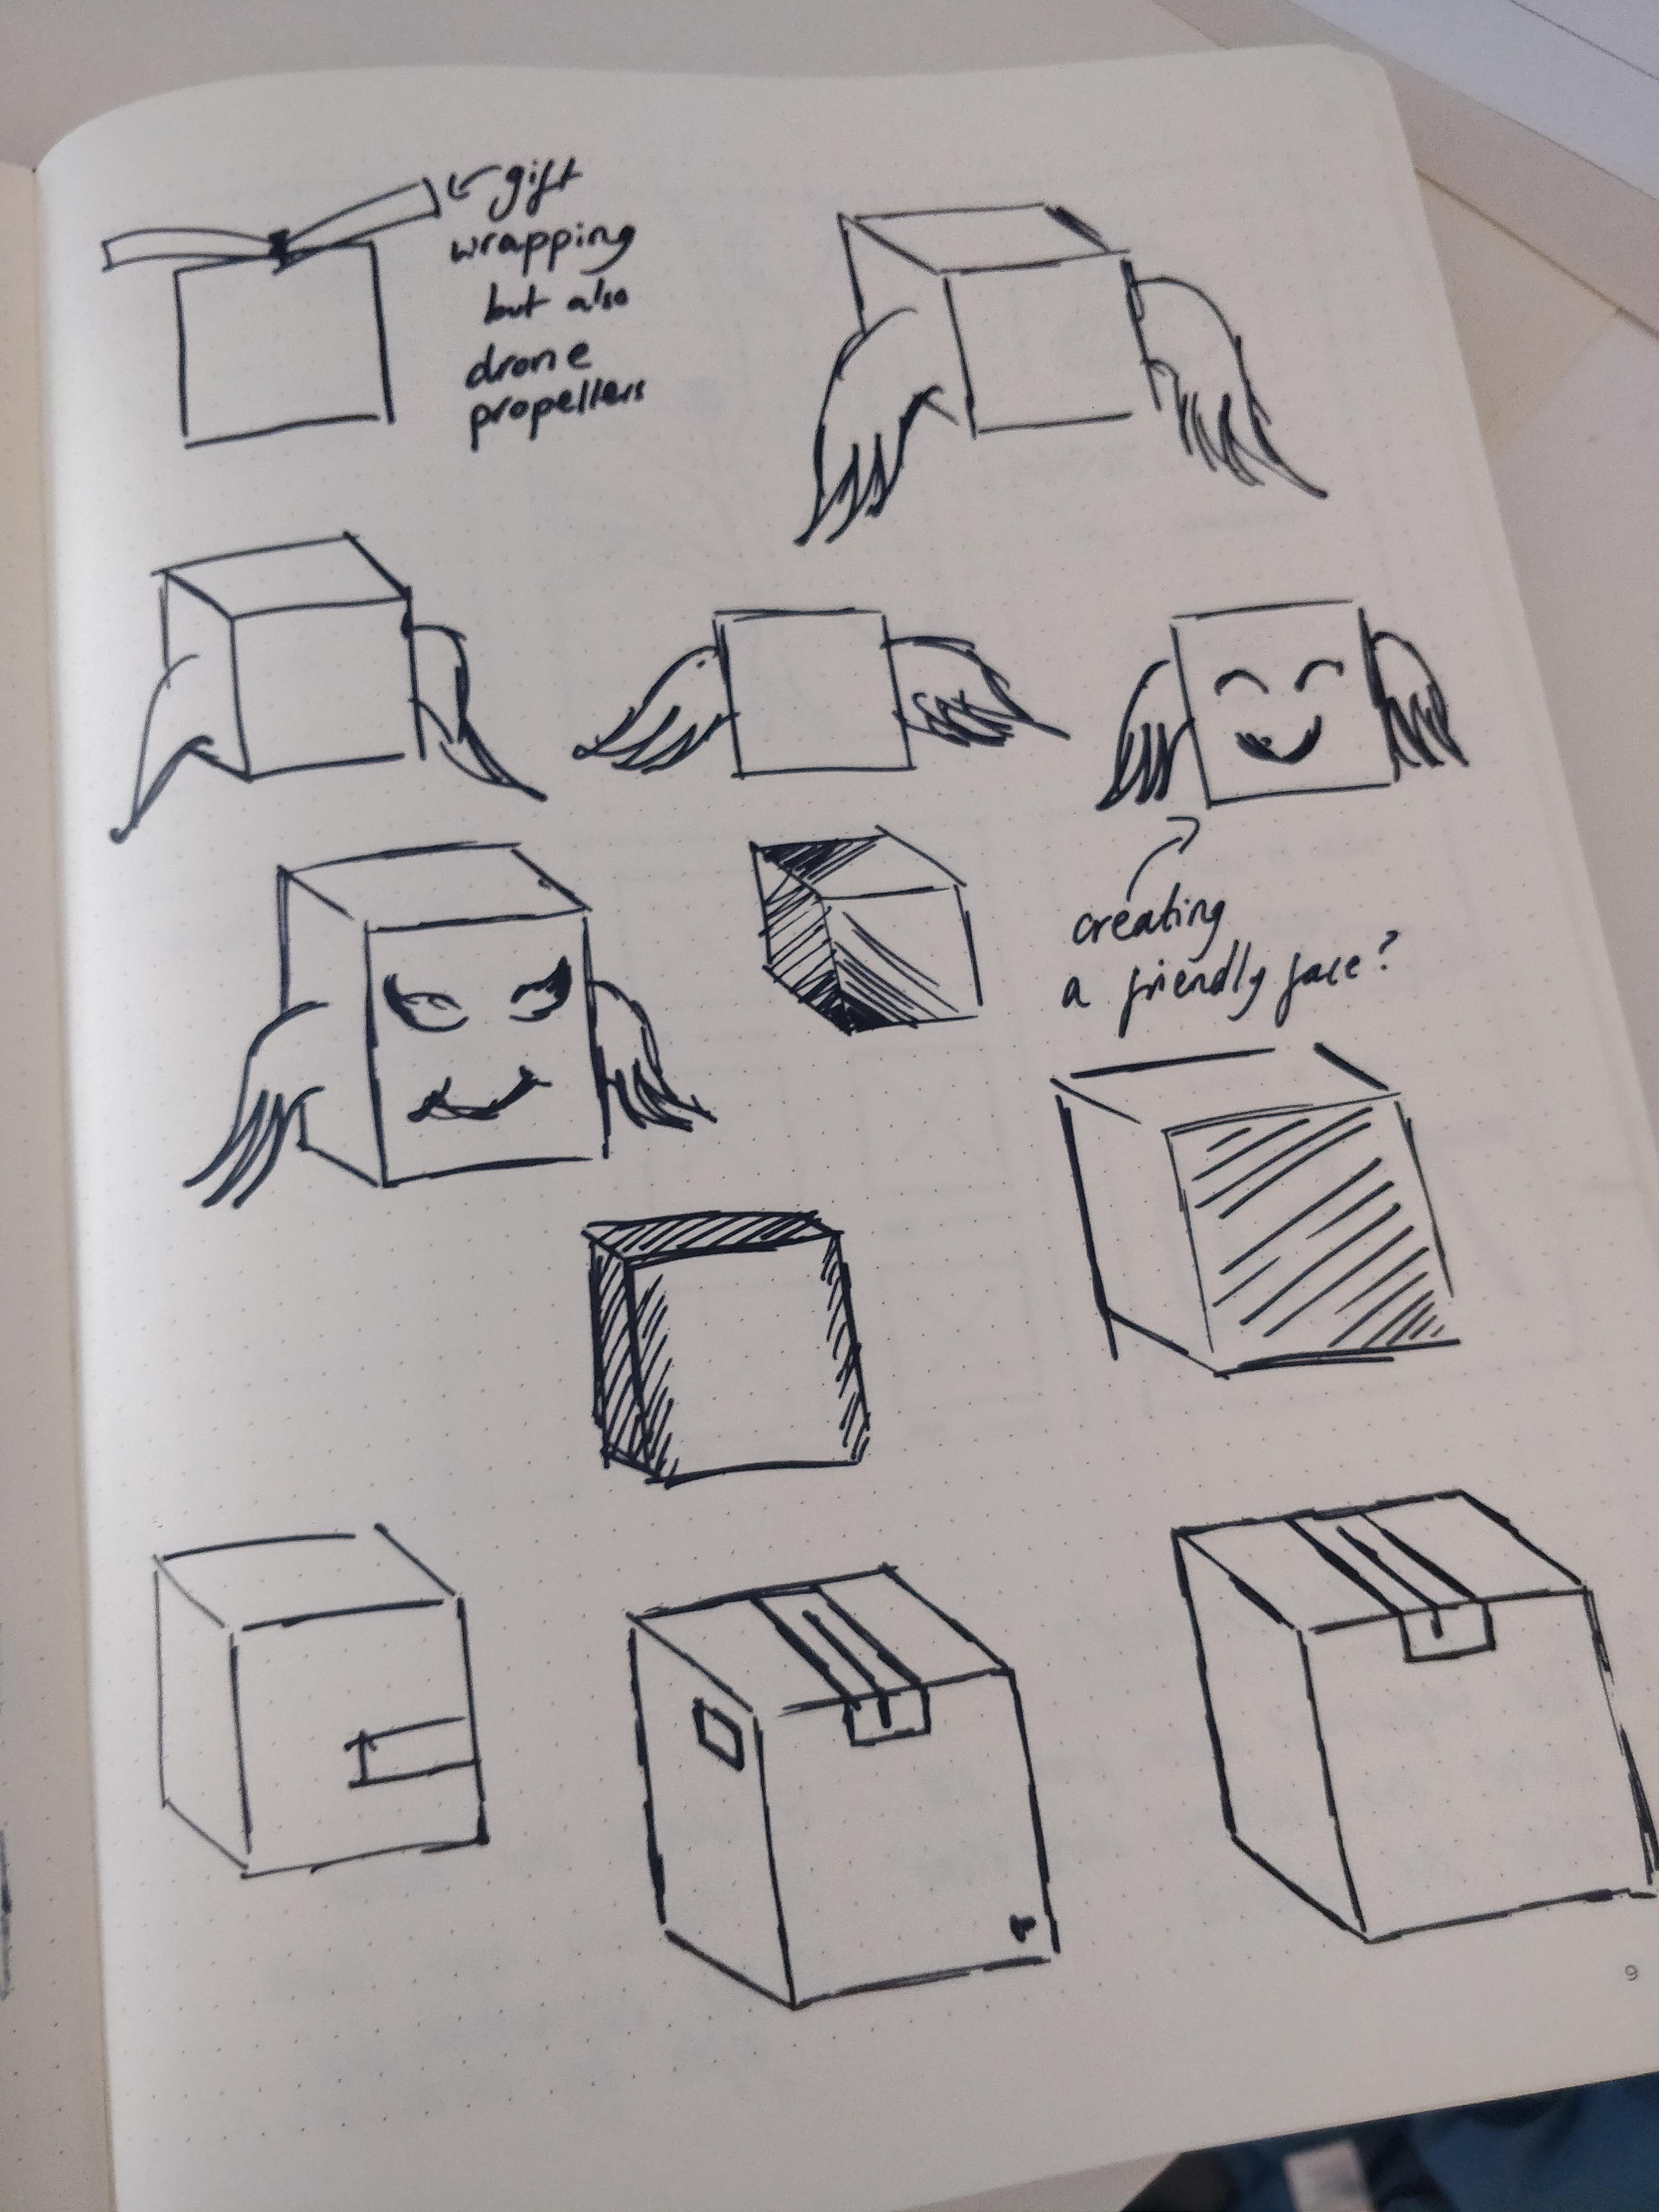 ← gift
wrapping
but also
drone
propellers
creating
a friendly face?
9